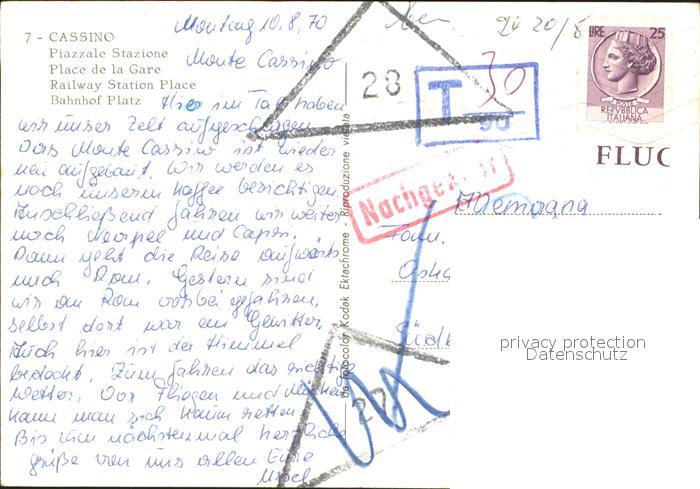 Montag 10.8.70
7 - CASSINO
Piazzale Stazione
Place de la Gare
Railway Station Place
Bahnhof Platz
Monte Cassino
Hier im Tal haben
wir unser Zelt aufgeschlagen.
Das Monte Cassino ist wieder
neu aufgebaut. Wir werden es
nach unserem Kaffee besichtigen.
Anschließend fahren wir weiter
nach Neapel und Capri.
Dann geht die Reise aufwärts
nach Rom. Gestern sind
wir an Rom vorbei gefahren,
selbst dort war ein Gewitter.
Auch hier ist der Himmel
bedeckt. Zum fahren das richtige
Wetter. Vor Fliegen und Mücken
kann man sich kaum retten
Bis zum nächstenmal herzliche
grüße von uns allen Eure
da fotocolor Kodak Ektachrome - Riproduzione vietata
28
T 30
LIRE 25
REPUBBLICA
ITALIANA
FLUC
Nachge
Allemagna
Fam.
privacy protection
Datenschutz